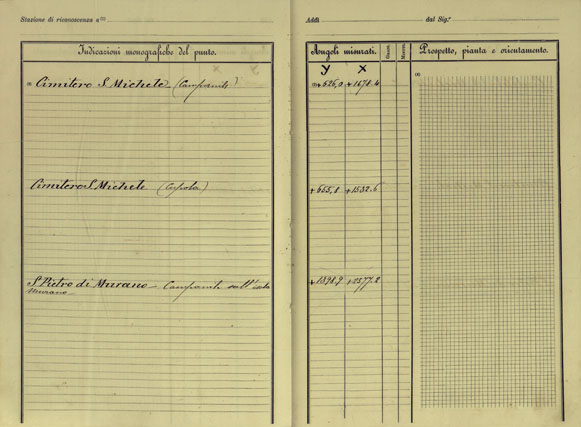 Stazione di riconoscenza a
Addì dal Sig.r
Indicazioni monografiche del punto.
Angoli misurati.
Prospetto, pianta e orientamento.
Y X
Cimitero S. Michele (Campanile)
+626,0 +1678.4
Cimitero S. Michele (Cupola)
+655,8 +1532.6
S. Pietro di Murano - Campanile sull'isola
Murano
+1398.9 +2377.2